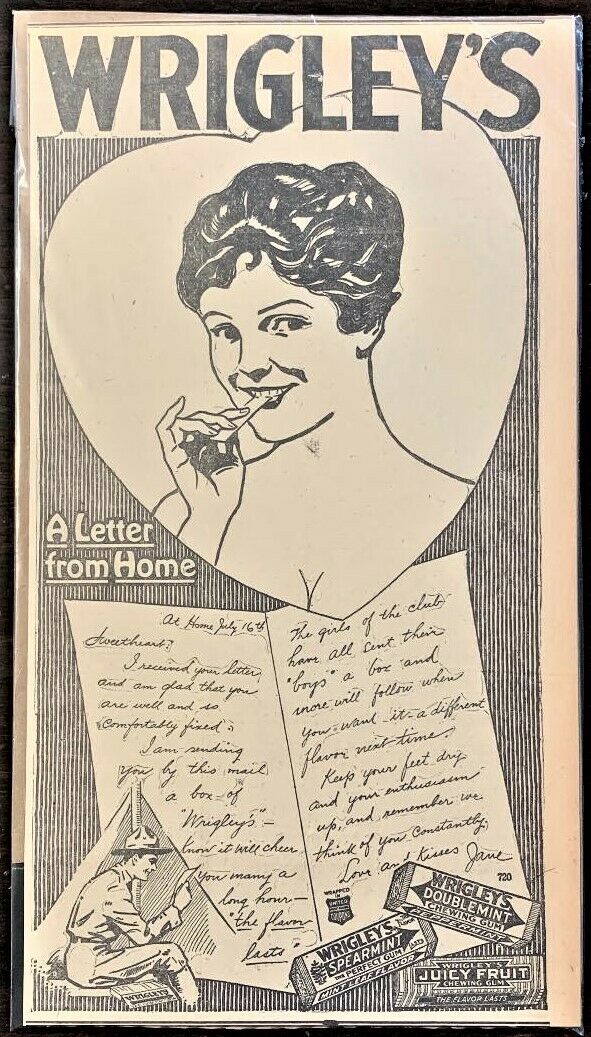 WRIGLEY'S
A Letter
from Home
At Home July 16th
Sweetheart:
I received your letter
and am glad that you
are well and so
comfortably fixed.
I am sending
you by this mail
a box of
"Wrigley's"-
know it will cheer
you many a
long hour-
"the flavor
lasts"
The girls of the club
have all sent their
"boys" a box and
more will follow when
you want it-a different
flavor next time.
Keep your feet dry
and your enthusiasm
up, and remember we
think of you constantly.
Love and Kisses Jane
720
WRAPPED
IN
UNITED
COUPONS
WRIGLEY'S
DOUBLEMINT
CHEWING GUM
WRIGLEY'S
SPEARMINT
THE PERFECT GUM
MINT LEAF FLAVOR
WRIGLEY'S
JUICY FRUIT
CHEWING GUM
THE FLAVOR LASTS
WRIGLEY